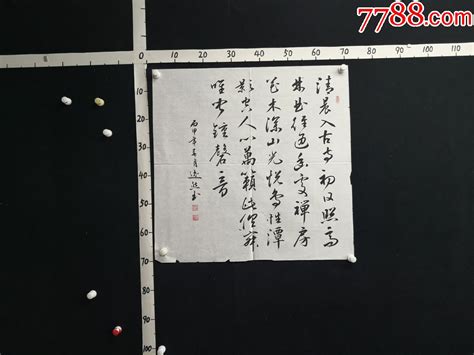 7788.com
30 20 10 0 10 20 30 40 50 60 70 80 90 100 110
10
20
30
40
50
60
70
80
90
100
清晨入古寺初日照高
林曲径通幽處禪房
花木深山光悦鸟性潭
影空人心萬籟此俱寂
唯聞鐘磬音
丙申年 月 书